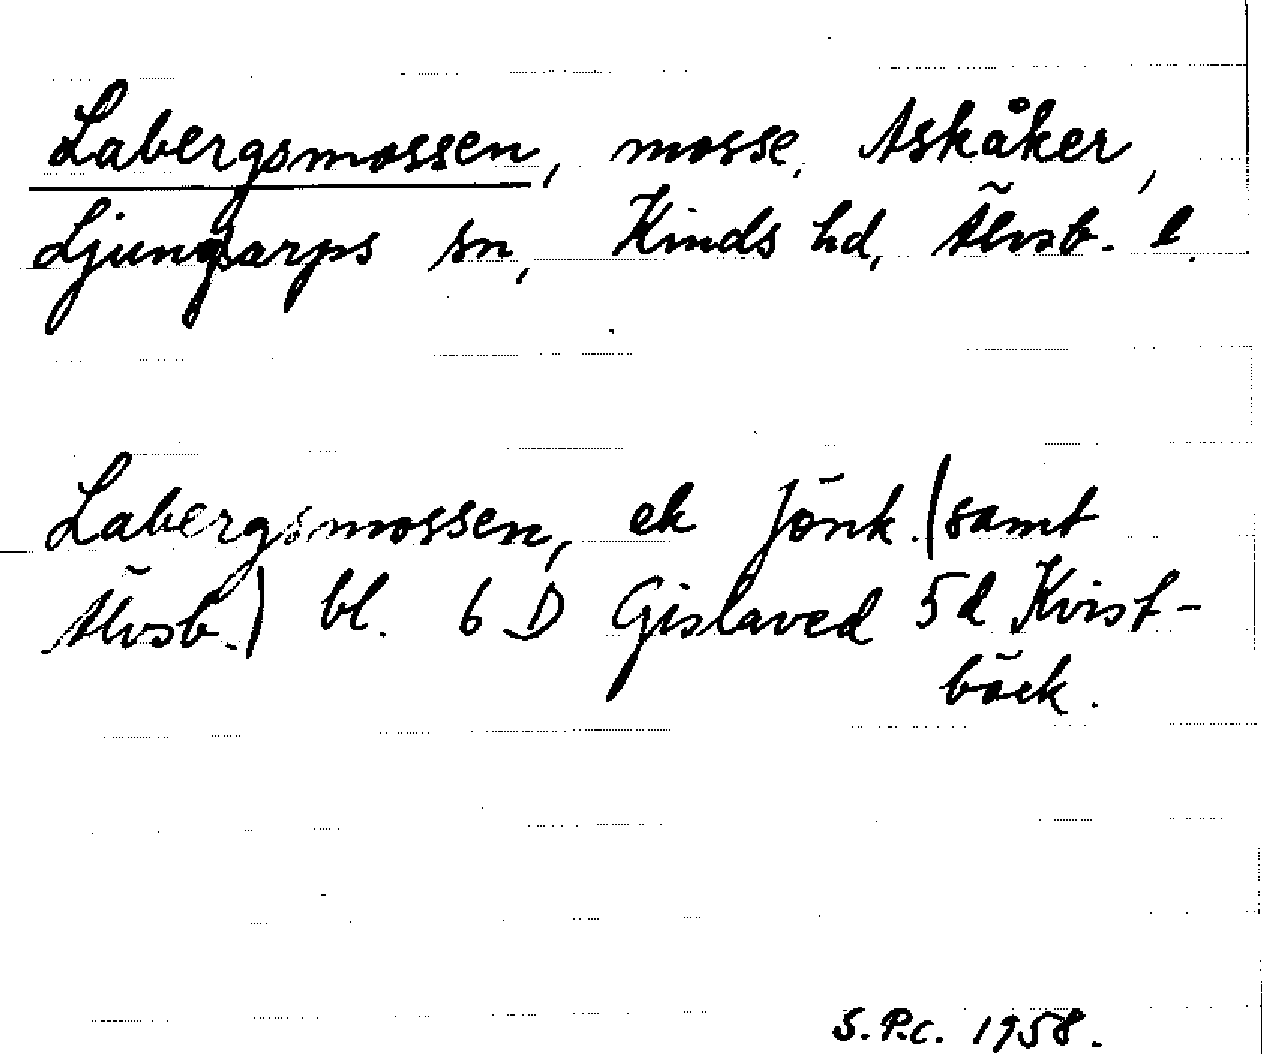 Labergsmossen, mosse, Askåker,
Ljungsarps sn, Kinds hd, Älvsb. l.
Labergsmossen, ek Jönk. (samt
Älvsb.) bl. 6 D Gislaved 5d Kvist-
bäck.
S.P.C. 1958.